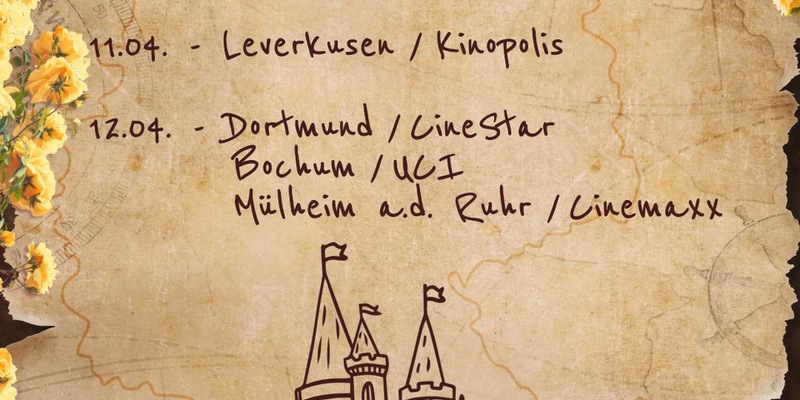 11.04. - Leverkusen / Kinopolis
12.04. - Dortmund / CineStar
Bochum / UCI
Mülheim a.d. Ruhr / Cinemaxx